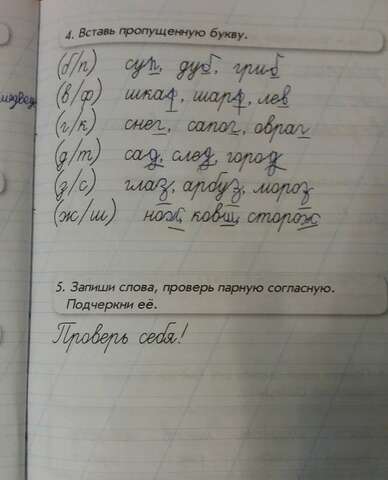 4. Вставь пропущенную букву.
(б/п) суп, дуб, гриб
(в/ф) шкаф, шарф, лев
(г/к) снег, сапог, овраг
(д/т) сад, след, город
(з/с) глаз, арбуз, мороз
(ж/ш) нож, ковш, сторож
5. Запиши слова, проверь парную согласную.
Подчеркни её.
Проверь себя!